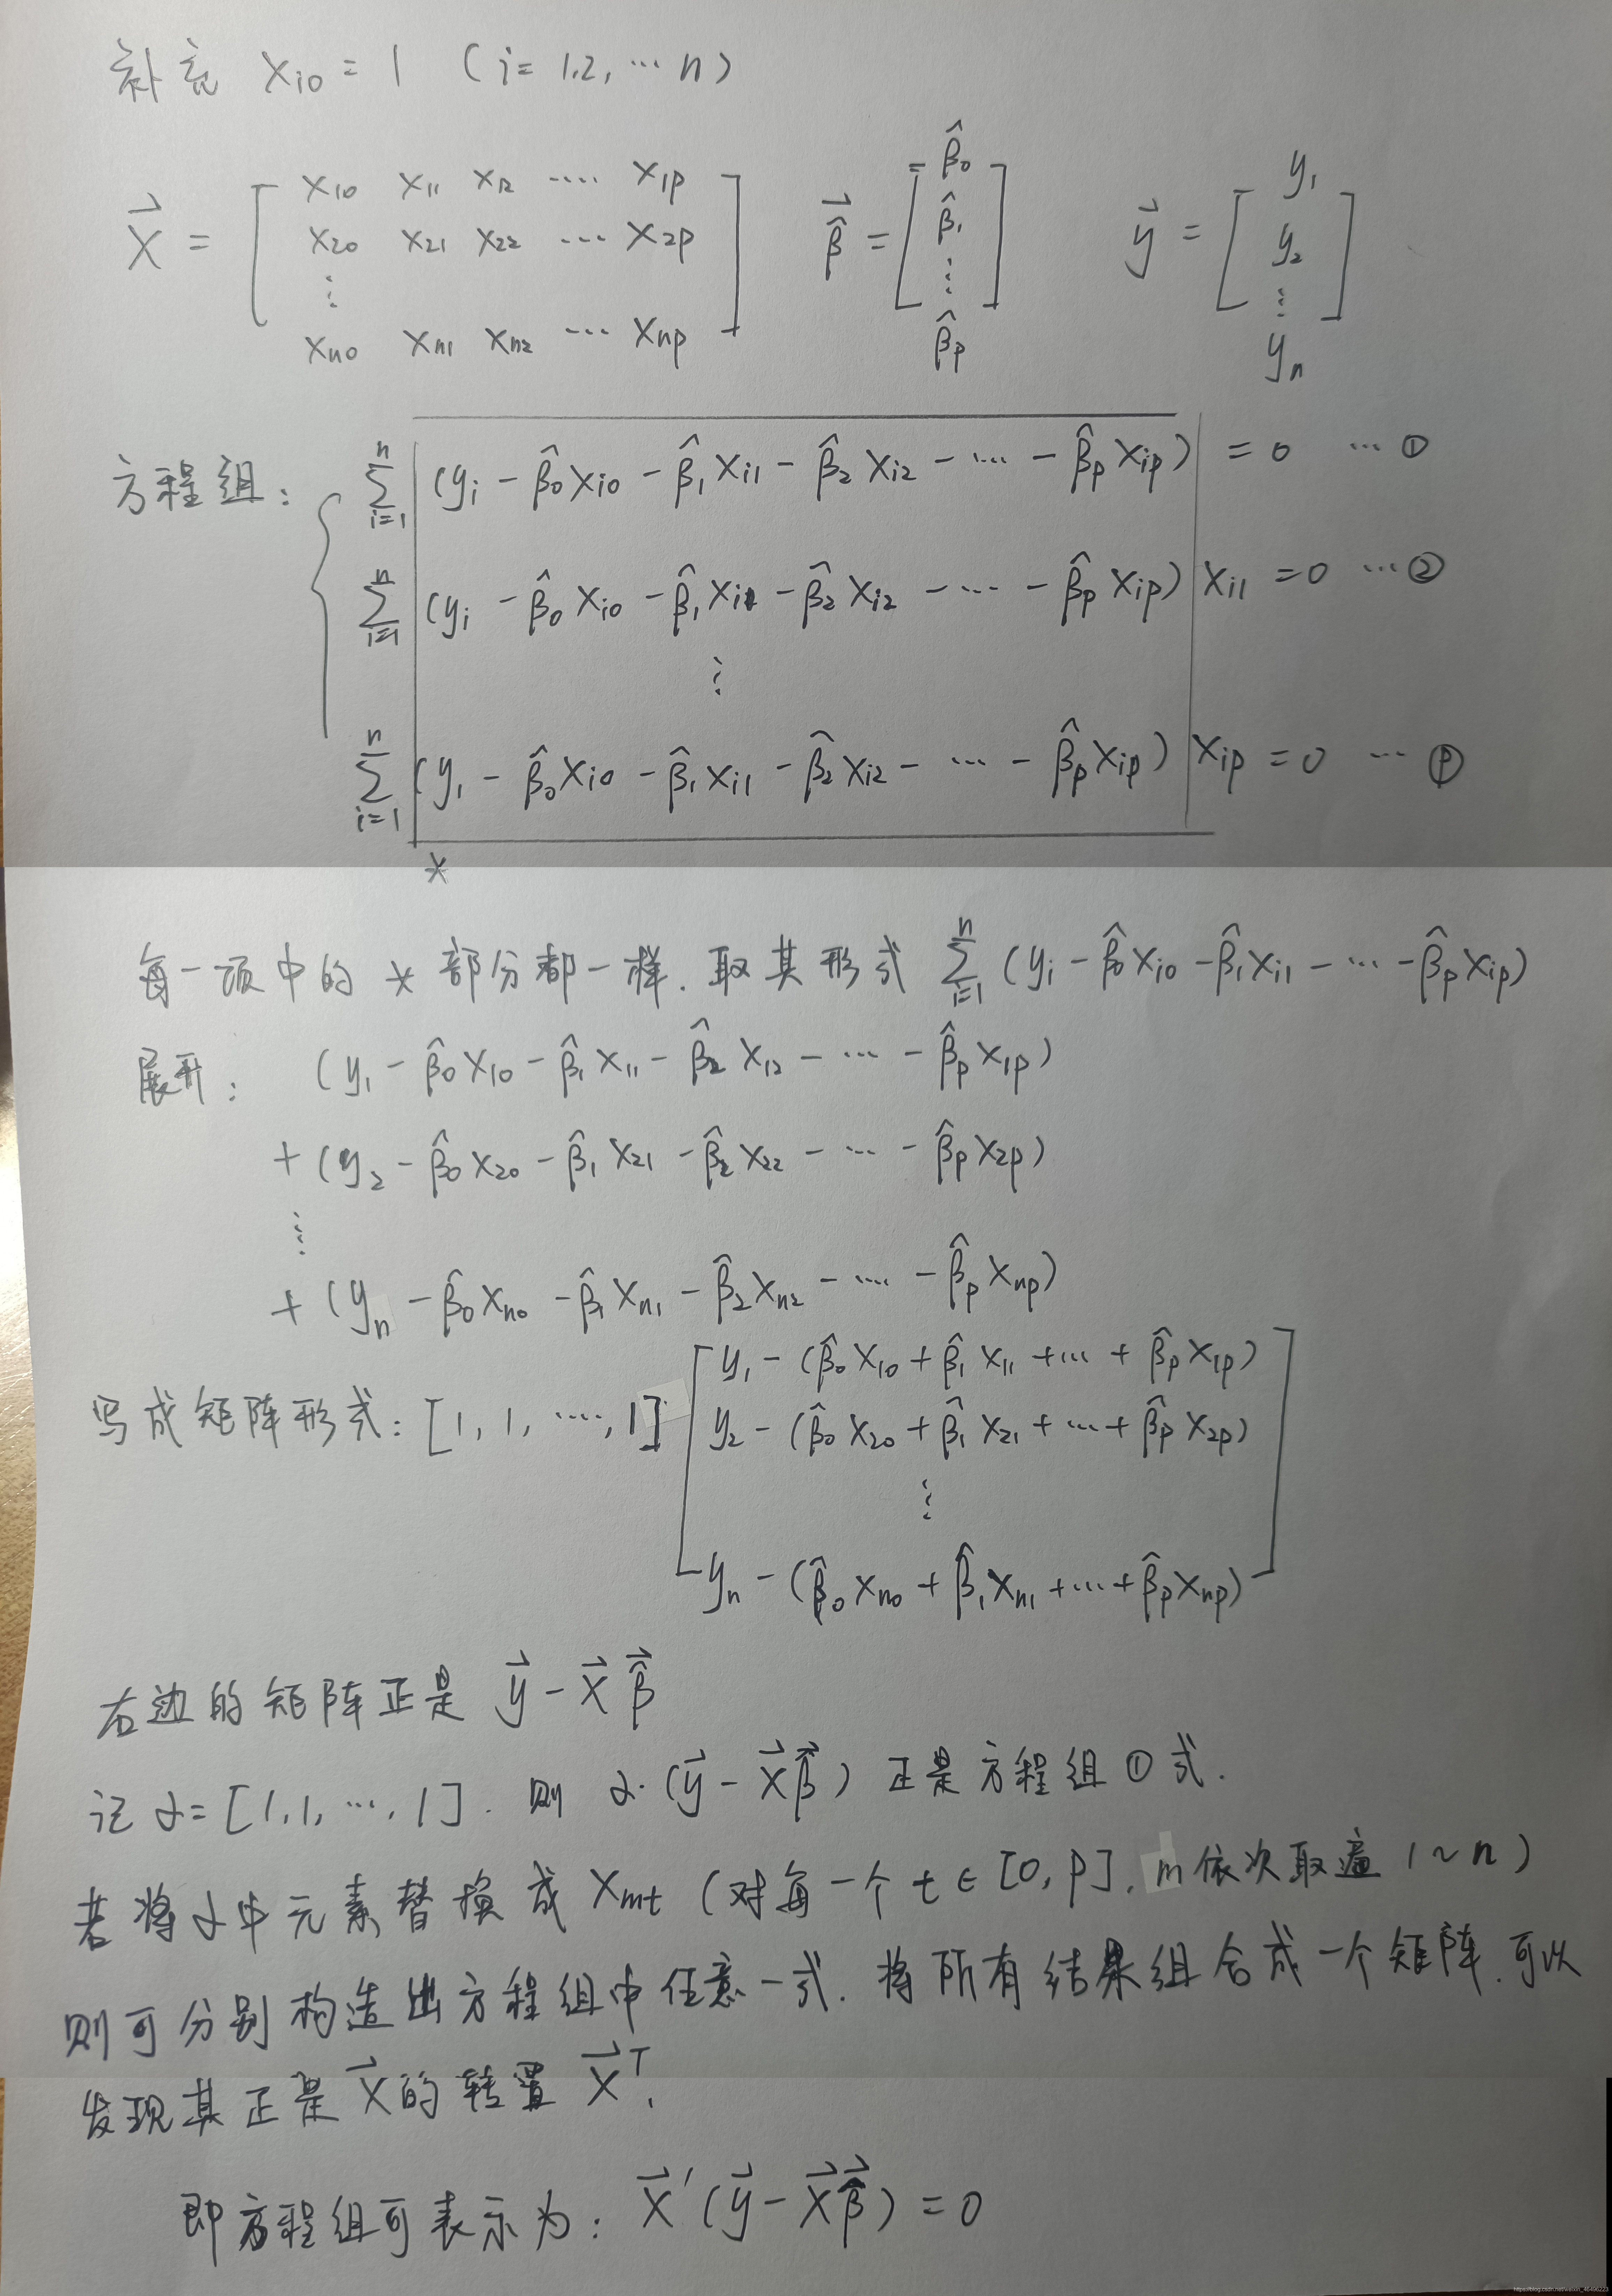 补充 x_{i0} = 1 (i = 1.2, ⋯ n)
\vec{X} = [ x_{10} x_{11} x_{12} ⋯⋯ x_{1p} ; x_{20} x_{21} x_{22} ⋯ x_{2p} ; ⋮ ; x_{n0} x_{n1} x_{n2} ⋯ x_{np} ] \vec{\hat{β}} = [ \hat{β}_0 ; \hat{β}_1 ; ⋮ ; \hat{β}_p ] \vec{y} = [ y_1 ; y_2 ; ⋮ ; y_n ]
方程组: { \sum_{i=1}^{n} (y_i - \hat{β}_0 x_{i0} - \hat{β}_1 x_{i1} - \hat{β}_2 x_{i2} - ⋯ - \hat{β}_p x_{ip}) = 0 ⋯ ①
\sum_{i=1}^{n} (y_i - \hat{β}_0 x_{i0} - \hat{β}_1 x_{i1} - \hat{β}_2 x_{i2} - ⋯ - \hat{β}_p x_{ip}) x_{i1} = 0 ⋯ ②
⋮
\sum_{i=1}^{n} (y_1 - \hat{β}_0 x_{i0} - \hat{β}_1 x_{i1} - \hat{β}_2 x_{i2} - ⋯ - \hat{β}_p x_{ip}) x_{ip} = 0 ⋯ ⓟ
*
每一项中的 * 部分都一样. 取其形式 \sum_{i=1}^{n} (y_i - \hat{β}_0 x_{i0} - \hat{β}_1 x_{i1} - ⋯ - \hat{β}_p x_{ip})
展开: (y_1 - \hat{β}_0 x_{10} - \hat{β}_1 x_{11} - \hat{β}_2 x_{12} - ⋯ - \hat{β}_p x_{1p})
+ (y_2 - \hat{β}_0 x_{20} - \hat{β}_1 x_{21} - \hat{β}_2 x_{22} - ⋯ - \hat{β}_p x_{2p})
⋮
+ (y_n - \hat{β}_0 x_{n0} - \hat{β}_1 x_{n1} - \hat{β}_2 x_{n2} - ⋯ - \hat{β}_p x_{np})
写成矩阵形式: [1, 1, ⋯, 1] · [ y_1 - (\hat{β}_0 x_{10} + \hat{β}_1 x_{11} + ⋯ + \hat{β}_p x_{1p})
y_2 - (\hat{β}_0 x_{20} + \hat{β}_1 x_{21} + ⋯ + \hat{β}_p x_{2p})
⋮
y_n - (\hat{β}_0 x_{n0} + \hat{β}_1 x_{n1} + ⋯ + \hat{β}_p x_{np}) ]
右边的矩阵正是 \vec{y} - \vec{X} \vec{\hat{β}}
记 α = [1, 1, ⋯, 1]. 则 α·(\vec{y} - \vec{X}\vec{\hat{β}}) 正是方程组①式.
若将α中元素替换成 x_{mt} (对每一个 t ∈ [0, p], m依次取遍 1 ~ n)
则可分别构造出方程组中任意一式. 将所有结果组合成一个矩阵, 可以
发现其正是 \vec{X} 的转置 \vec{X}^T.
即方程组可表示为: \vec{X}'(\vec{y} - \vec{X}\vec{\hat{β}}) = 0